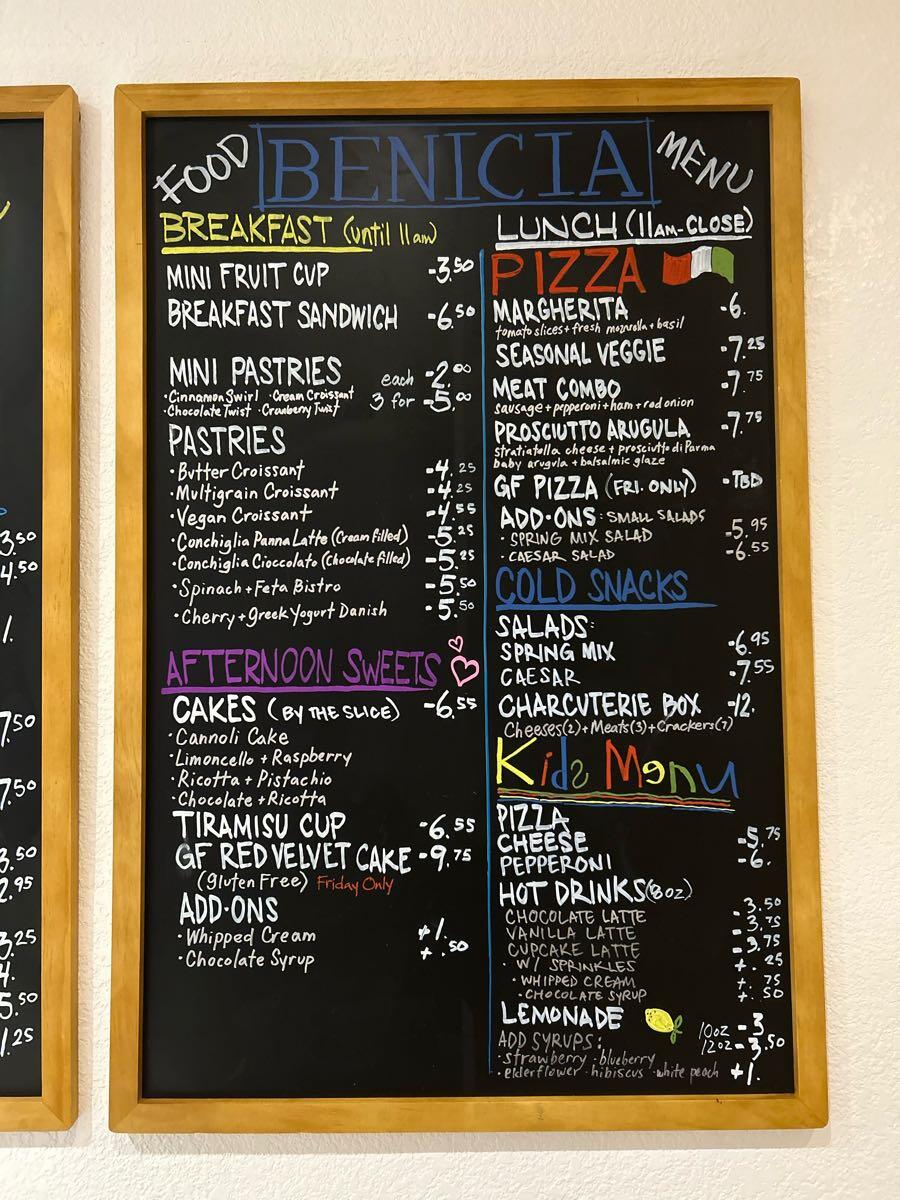 FOOD BENICIA MENU
BREAKFAST (until 11am)
MINI FRUIT CUP -3.50
BREAKFAST SANDWICH -6.50
MINI PASTRIES each -2.00
·Cinnamon Swirl ·Cream Croissant 3 for -5.00
·Chocolate Twist ·Cranberry Twist
PASTRIES
·Butter Croissant -4.25
·Multigrain Croissant -4.25
·Vegan Croissant -4.55
·Conchiglia Panna Latte (Cream filled) -5.25
·Conchiglia Cioccolato (Chocolate filled) -5.25
·Spinach + Feta Bistro -5.50
·Cherry + Greek Yogurt Danish -5.50
AFTERNOON SWEETS
CAKES (BY THE SLICE) -6.55
·Cannoli Cake
·Limoncello + Raspberry
·Ricotta + Pistachio
·Chocolate + Ricotta
TIRAMISU CUP -6.55
GF RED VELVET CAKE -9.75
(gluten Free) Friday Only
ADD·ONS
·Whipped Cream +1.
·Chocolate Syrup +.50
LUNCH (11AM-CLOSE)
PIZZA
MARGHERITA -6.
tomato slices + fresh mozzrella + basil
SEASONAL VEGGIE -7.25
MEAT COMBO -7.75
sausage + pepperoni + ham + red onion
PROSCIUTTO ARUGULA -7.75
stratiatella cheese + prosciutto di Parma
baby arugula + balsalmic glaze
GF PIZZA (FRI. ONLY) -TBD
ADD·ONS: SMALL SALADS
·SPRING MIX SALAD -5.95
·CAESAR SALAD -6.55
COLD SNACKS
SALADS:
SPRING MIX -6.95
CAESAR -7.55
CHARCUTERIE BOX -12.
Cheeses(2) + Meats(3) + Crackers(7)
Kids Menu
PIZZA
CHEESE -5.75
PEPPERONI -6.
HOT DRINKS (8oz)
CHOCOLATE LATTE -3.50
VANILLA LATTE -3.75
CUPCAKE LATTE -3.75
·W/ SPRINKLES +.25
·WHIPPED CREAM +.75
·CHOCOLATE SYRUP +.50
LEMONADE 10oz -3
ADD SYRUPS: 12oz -3.50
·strawberry ·blueberry
·elderflower ·hibiscus ·white peach +1.
3.50
4.50
1.
7.50
7.50
3.50
2.95
3.25
4.
5.50
1.25